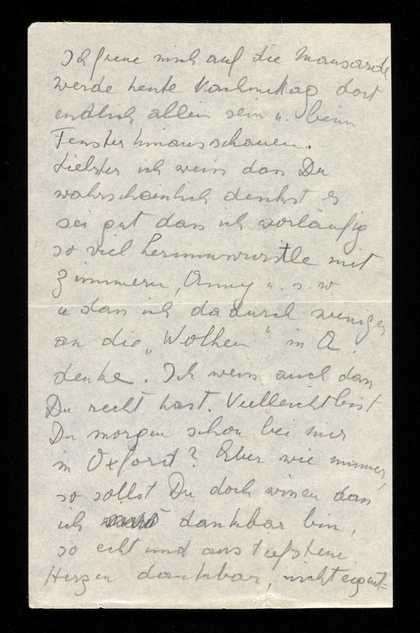 Ich freue mich auf die Mansarde
werde heute Nachmittag dort
endlich allein sein u. beim
Fenster hinausschauen.
Liebster ich weiss dass Du
wahrscheinlich denkst es
sei gut dass ich vorläufig
so viel herumwurstle mit
Zimmern, Anny u. s. w
u dass ich dadurch weniger
an die „Wolken" in A.
denke. Ich weiss auch dass
Du recht hast. Vielleicht bist
Du morgen schon bei mir
in Oxford? Aber wie immer,
so sollst Du doch wissen dass
ich dankbar bin,
so echt und aus tiefstem
Herzen dankbar, nicht eigent=